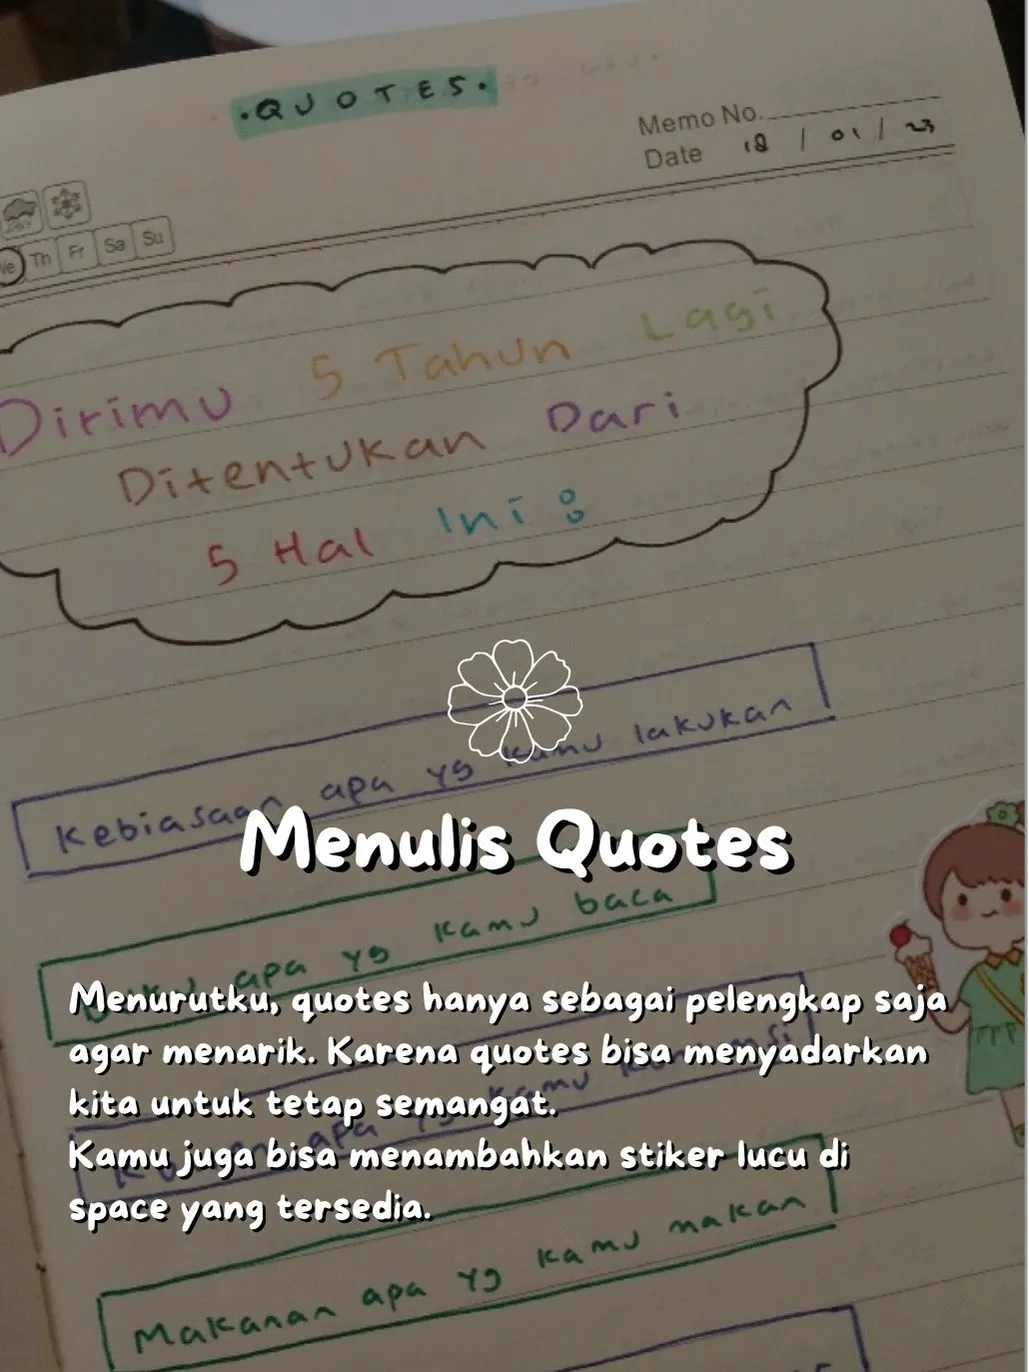 ·QUOTES·
Memo No.
Date 18 / 01 / 23
Th Fr Sa Su
Dirimu 5 Tahun Lagi
Ditentukan Dari
5 Hal Ini :
Kebiasaan apa yg kamu lakukan
Menulis Quotes
apa yg kamu baca
Menurutku, quotes hanya sebagai pelengkap saja
agar menarik. Karena quotes bisa menyadarkan
kita untuk tetap semangat.
apa yg kamu
Kamu juga bisa menambahkan stiker lucu di
space yang tersedia.
Makanan apa yg kamu makan